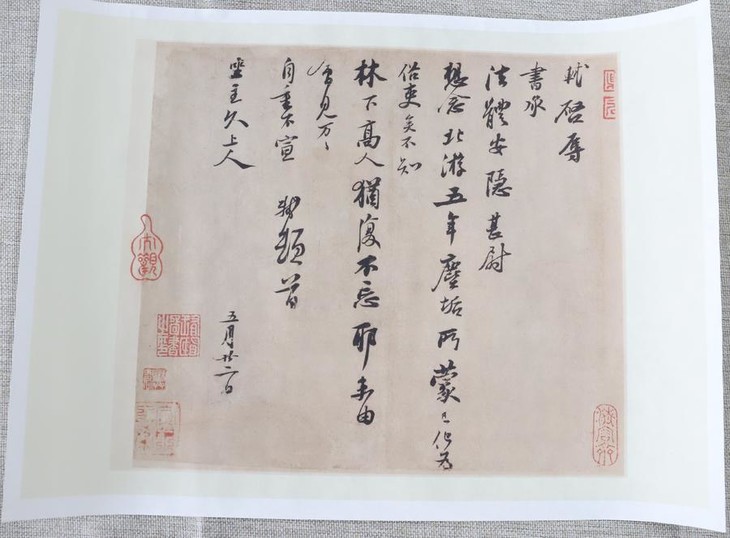 軾啓辱
書承
法體安隱甚慰
想念北游五年塵垢所蒙已化為
俗吏矣不知
林下高人猶復不忘耶未由
會見万万
自重不宣 軾頓首
坐主久上人
五月廿二日